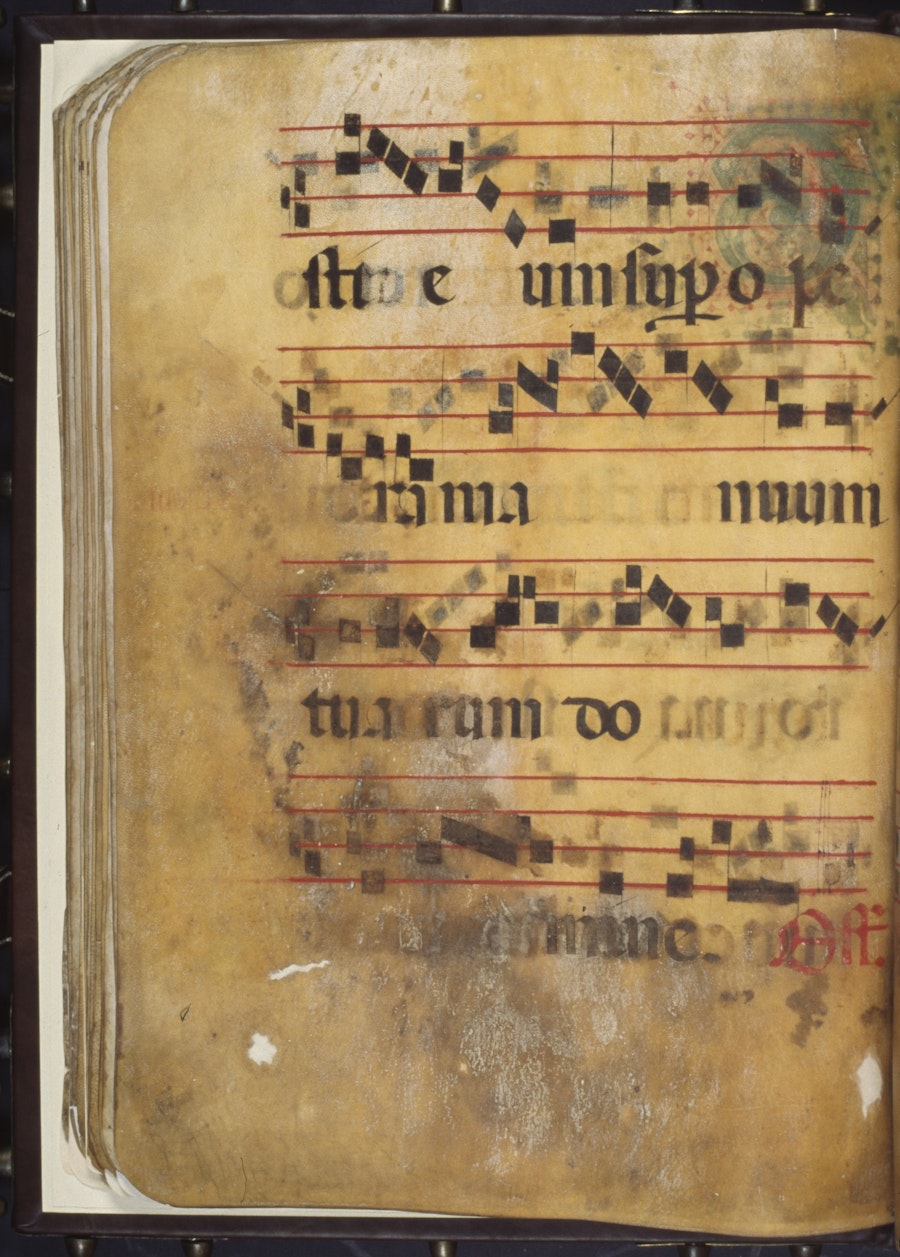 sti e um sup o pe
ra ma nuum
tua rum do
mine. Off.